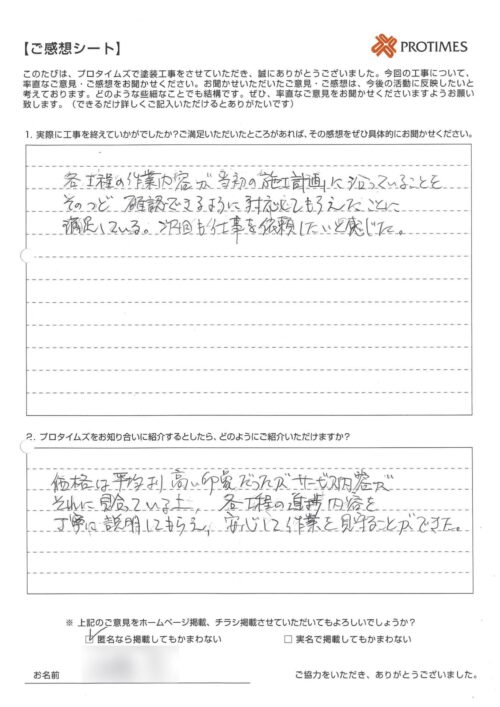 【ご感想シート】
PROTIMES
このたびは、プロタイムズで塗装工事をさせていただき、誠にありがとうございました。今回の工事について、
率直なご意見・ご感想をお聞かせください。お聞かせいただいたご意見・ご感想は、今後の活動に反映したいと
考えております。どのような些細なことでも結構です。ぜひ、率直なご意見をお聞かせくださいますようお願い
致します。（できるだけ詳しくご記入いただけるとありがたいです）
1. 実際に工事を終えていかがでしたか？ご満足いただいたところがあれば、その感想をぜひ具体的にお聞かせください。
各工程の作業内容が当初の「施工計画」に沿っていることを
そのつど確認できるように対応してもらえたことに
満足している。次回も仕事を依頼したいと感じた。
2. プロタイムズをお知り合いに紹介するとしたら、どのようにご紹介いただけますか？
価格は平均より高い印象だったが サービス内容が
それに見合っている上、各工程の進捗内容を
丁寧に説明してもらえ、安心して作業を見守ることができた。
※ 上記のご意見をホームページ掲載、チラシ掲載させていただいてもよろしいでしょうか？
匿名なら掲載してもかまわない
実名で掲載してもかまわない
お名前
ご協力をいただき、ありがとうございました。